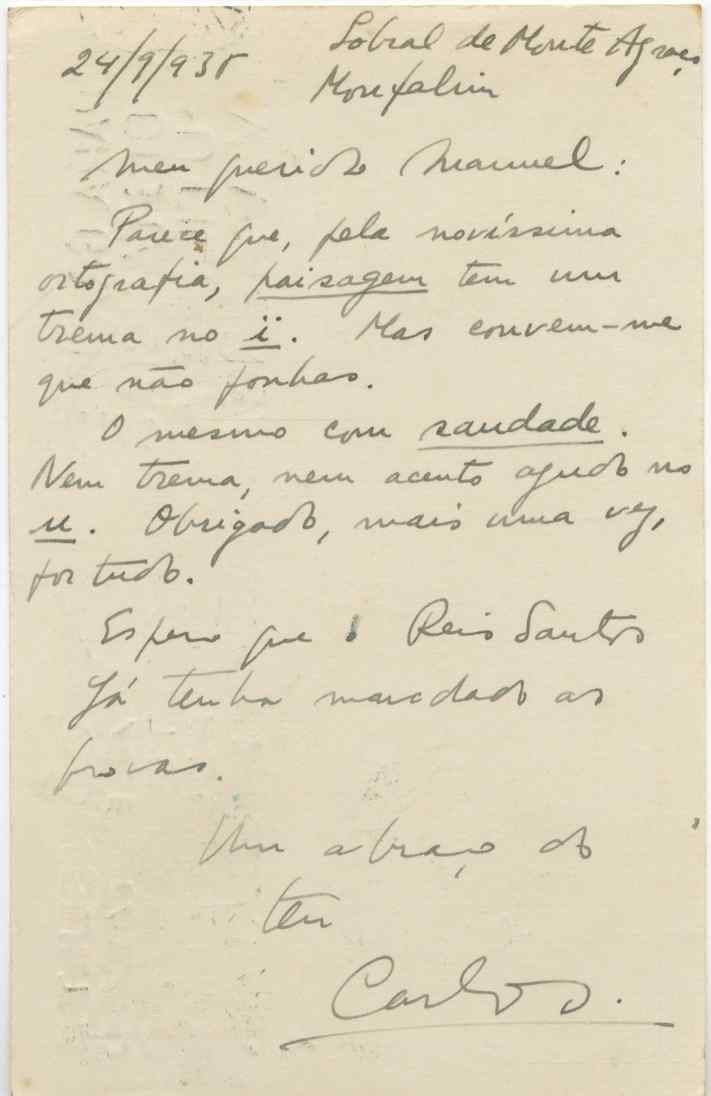 24/9/938
Sobral de Monte Agraço
Monfalim
Meu querido Manuel:
Parece que, pela novíssima
ortografia, paisagem tem um
trema no ï. Mas convem-me
que não ponhas.
O mesmo com saudade.
Nem trema, nem acento agudo no
u. Obrigado, mais uma vez,
por tudo.
Espero que o Reis Santos
já tenha mandado as
provas.
Um abraço do
teu
Carlos.